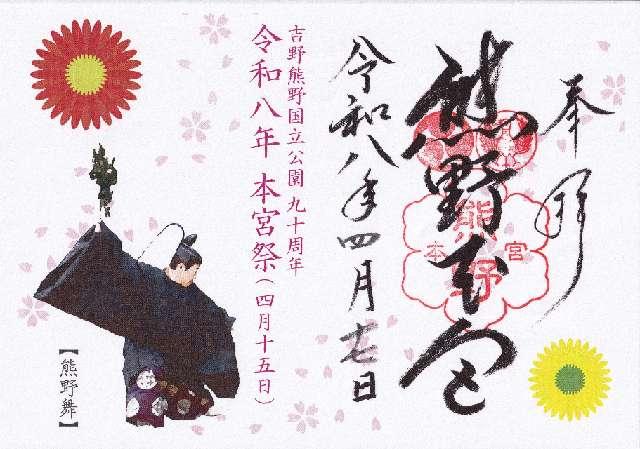 奉拝
熊野本宮
熊野
本宮
令和八年四月十七日
吉野熊野国立公園 九十周年
令和八年 本宮祭(四月十五日)
【熊野舞】